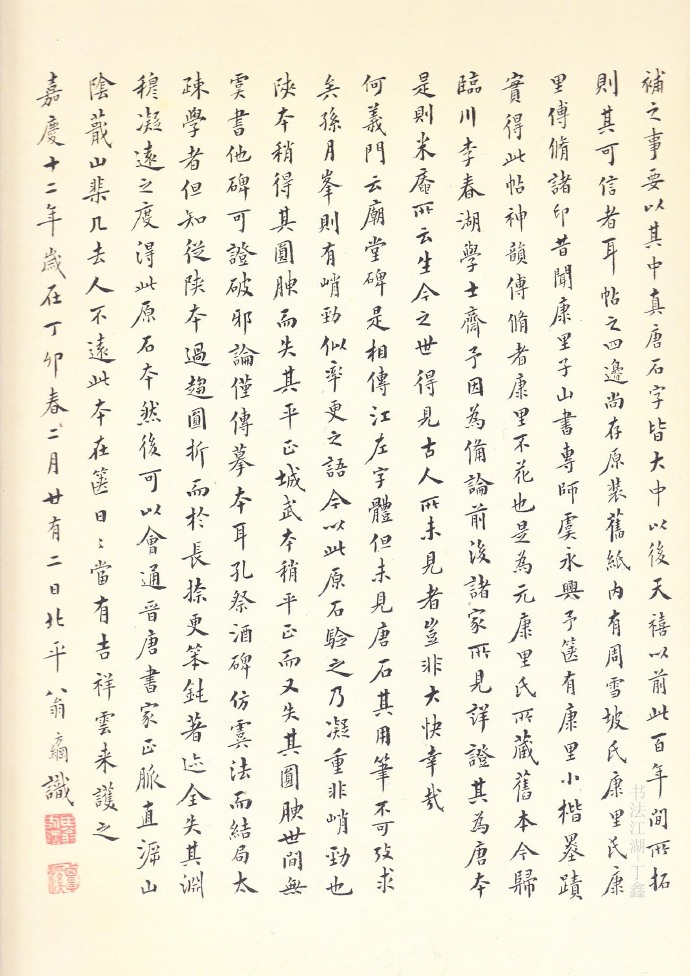 補之事要以其中真唐石字皆大中以後天禧以前此百年間所拓
則其可信者耳帖之四邊尚存原裝舊紙內有周雪坡氏康里氏康
里傅脩諸印昔聞康里子山書專師虞永興予篋有康里小楷墨蹟
實得此帖神韻傅脩者康里不花也是為元康里氏所藏舊本今歸
臨川李春湖學士齋予因為備論前後諸家所見詳證其為唐本
是則米庵所云生今之世得見古人所未見者豈非大快幸哉
何義門云廟堂碑是相傳江左字體但未見唐石其用筆不可攷求
矣孫月峯則有峭勁似率更之語今以此原石驗之乃凝重非峭勁也
陝本稍得其圓腴而失其平正城武本稍平正而又失其圓腴世間無
虞書他碑可證破邪論僅傳摹本耳孔祭酒碑仿虞法而結局太
疎學者但知從陝本過趨圓折而於長捺更笨鈍著迹全失其淵
穆凝遠之度得此原石本然後可以會通晉唐書家正脈直溯山
陰蕺山棐几去人不遠此本在篋日〻當有吉祥雲来護之
嘉慶十二年歲在丁卯春二月廿有二日北平翁方綱識
书法江湖 丁鑫